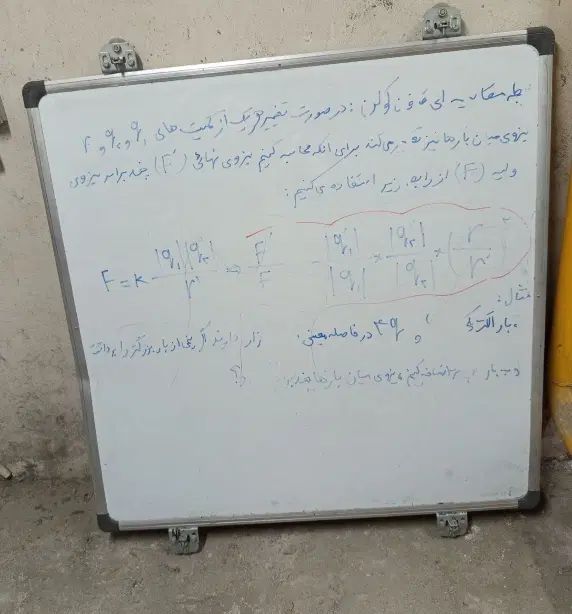 رابطه مقایسه ای قانون کولن: در صورت تغییر هر یک از کمیت های q₁ و q₂ و r
نیروی بین بارها نیز تغییر می کند برای آنکه محاسبه کنیم نیروی نهائی (F′) چند برابر نیروی
اولیه (F) از رابطه زیر استفاده می کنیم:
F = k |q₁||q₂| / r² ⇒ F′/F = |q′₁|/|q₁| × |q′₂|/|q₂| × (r/r′)²
مثال:
بار الکتریکی و 4q در فاصله معینی قرار دارند اگر نیمی از بار بزرگتر را برداشته
و به بار اضافه کنیم، نیروی میان بارها چند برابر ؟